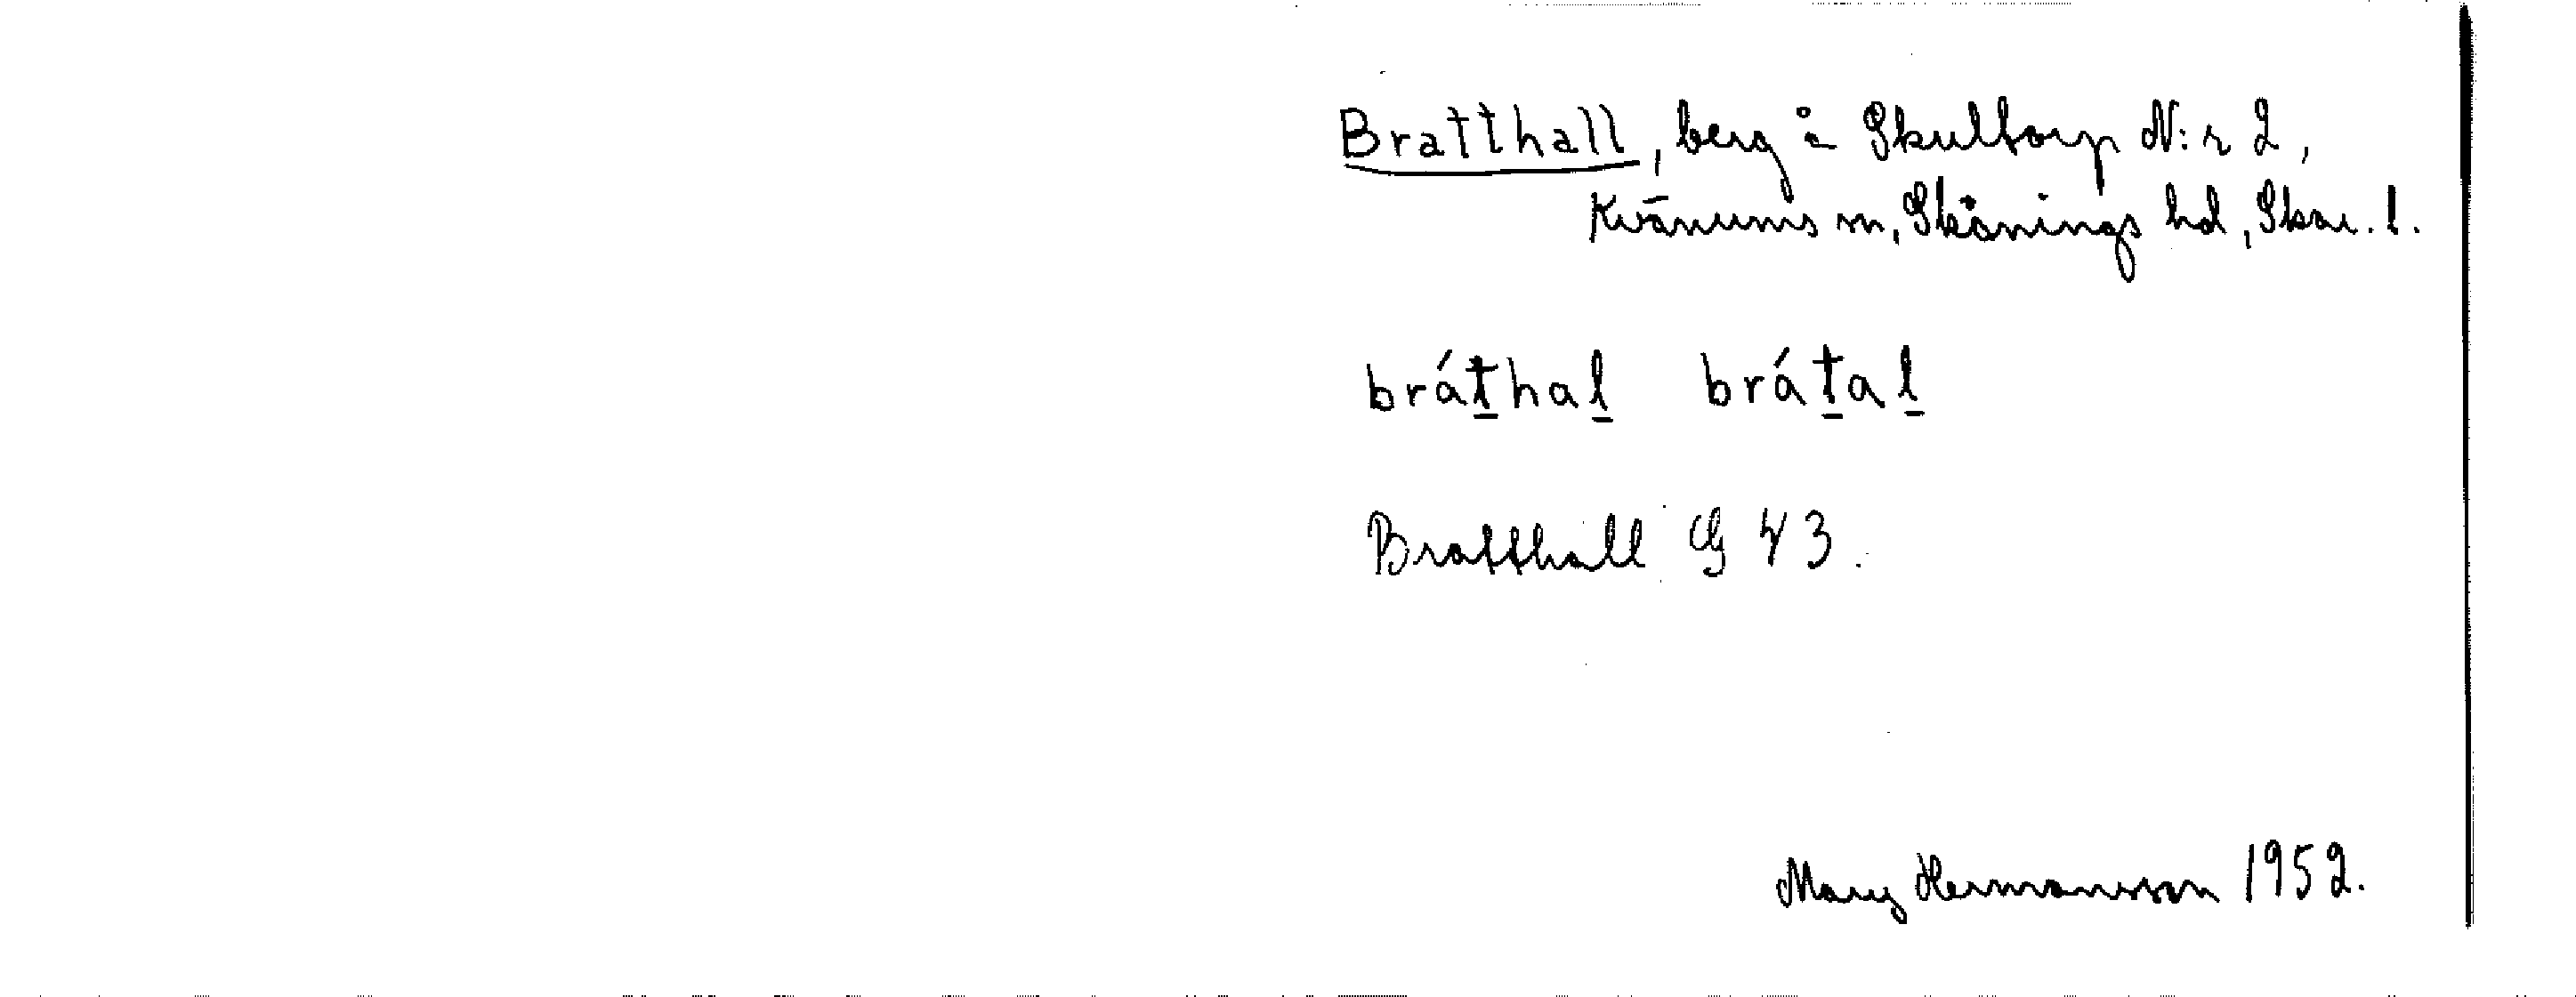 Bratthall, berg å Skultorp N:r 2,
Kvänums sn, Skånings hd, Skar. l.
bráṯhaḻ bráṯaḻ
Bratthall G 43.
Mary Hermansson 1952.